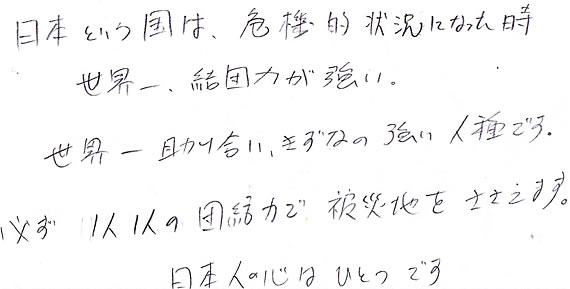 日本という国は、危機的状況になった時
世界一、結団力が強い。
世界一助け合い、きずなの強い人種です。
必ず 1人1人の団結力で被災地をささえます。
日本人の心はひとつです